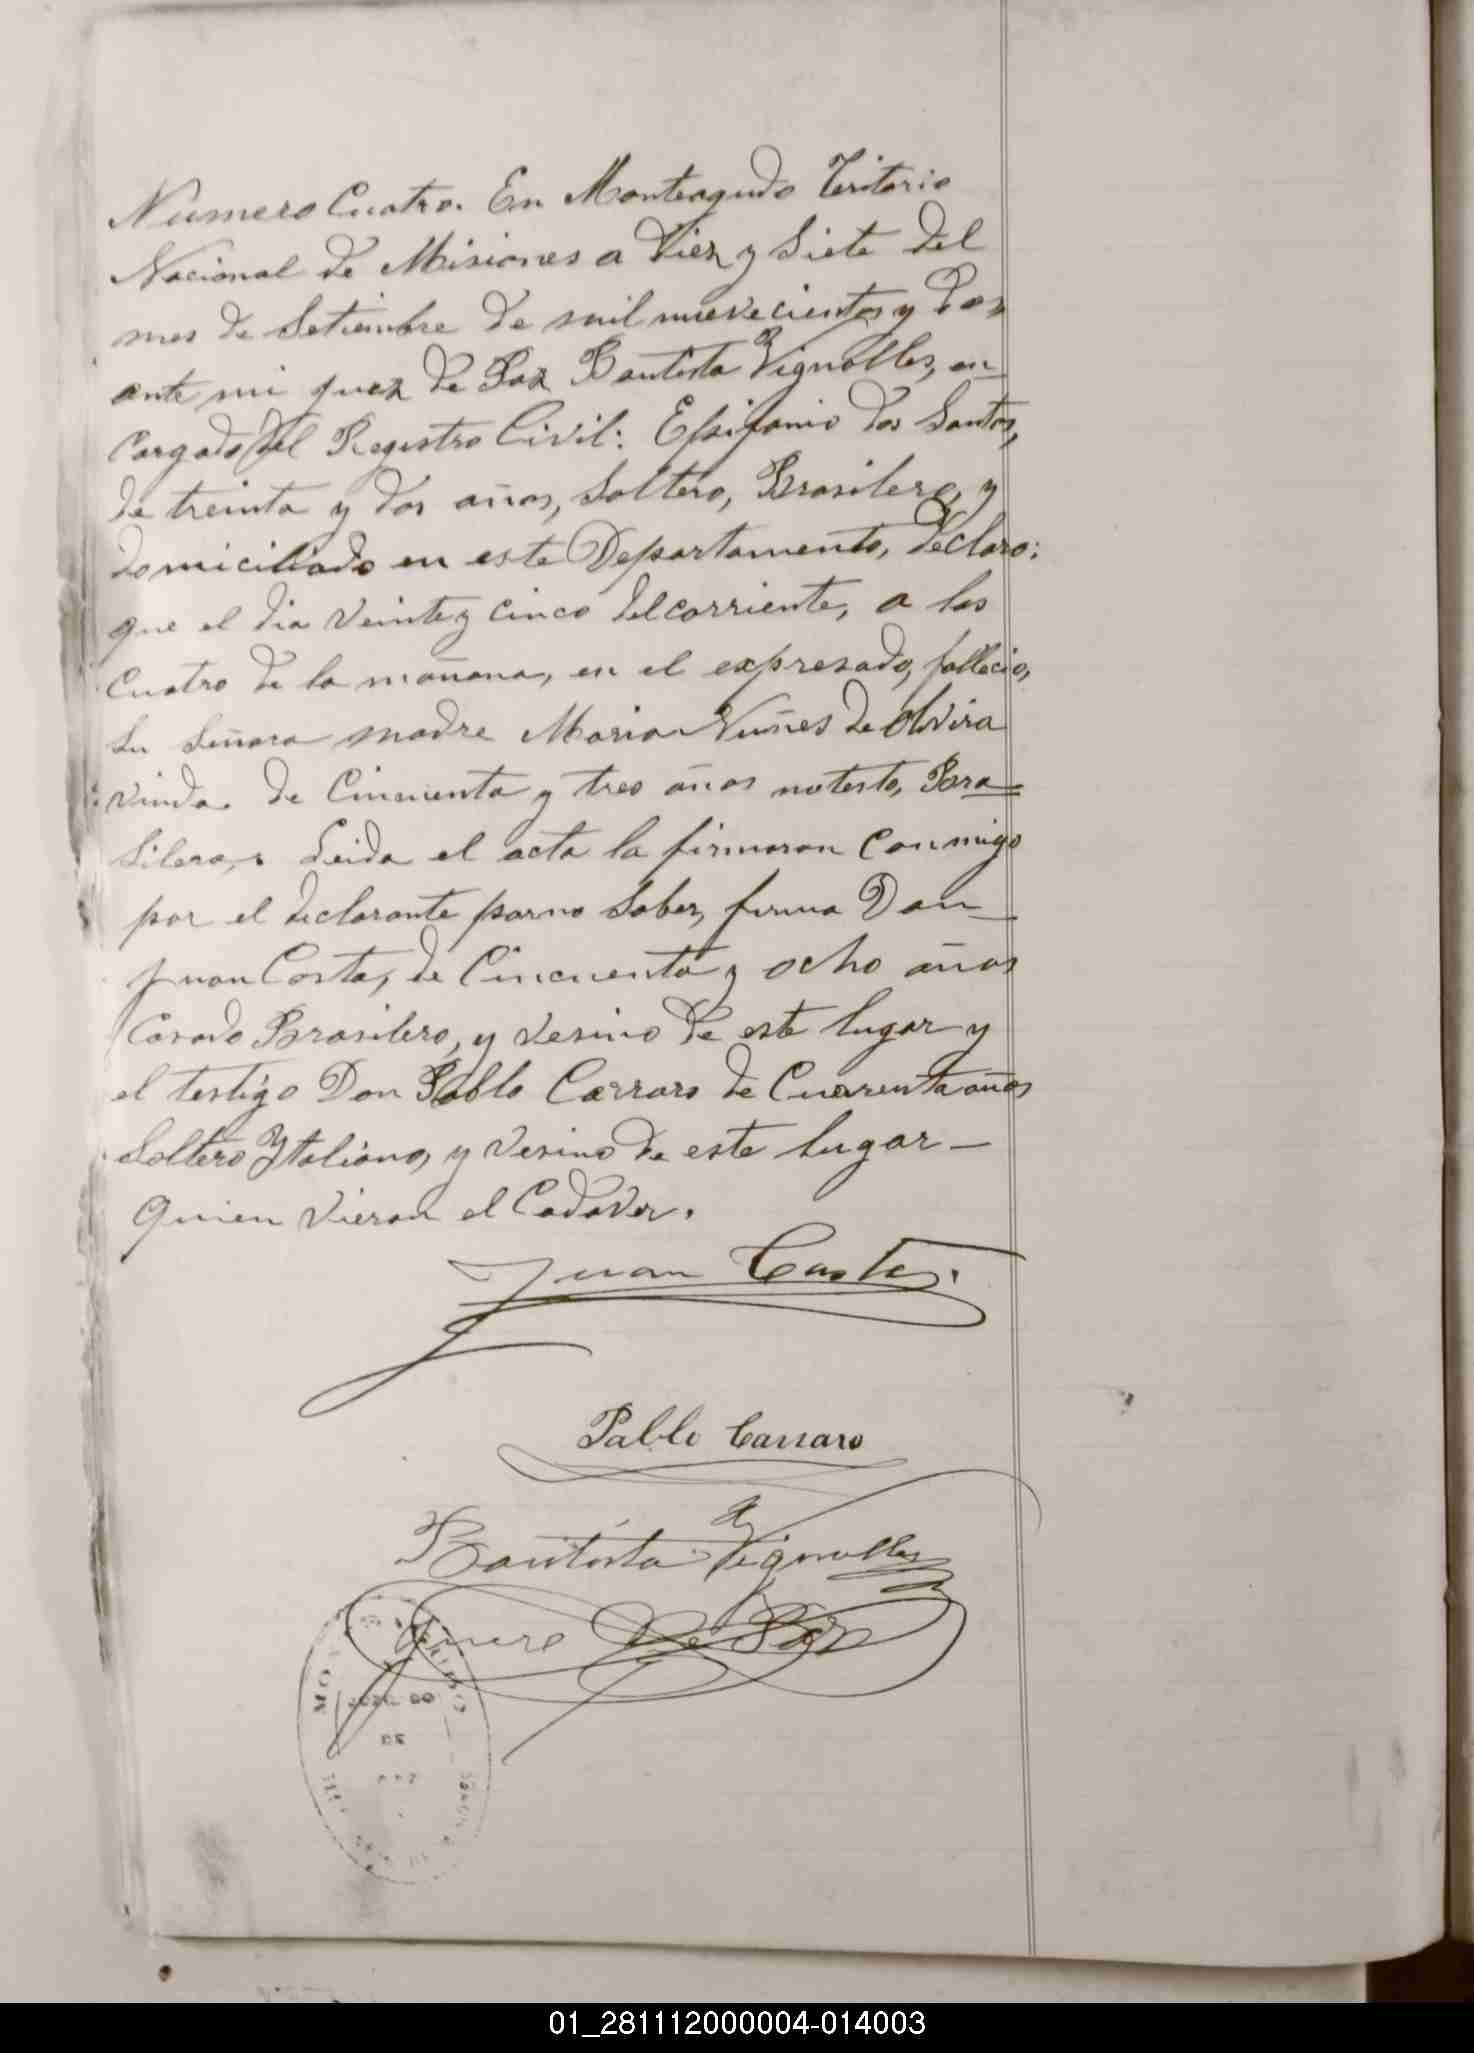 Numero Cuatro. En Monteagudo Teritorio
Nacional de Misiones a Diez y Siete del
mes de Setiembre de mil nuevecientos y Dos
ante mi Juez de Paz Bautista Vignolles, en
cargado del Registro Civil: Epifanio Dos Santos,
de treinta y dos años, Soltero, Brasilero, y
domiciliado en este Departamento, Declaro:
que el dia Veinte y cinco del corriente, a las
Cuatro de la mañana, en el expresado, fallecio,
su Señora madre Maria Nuñes de Olvira
viuda de Cincuenta y tres años no testo, Bra=
silera, Leida el acta la firmaron Conmigo
por el declarante por no Saber, firma Don
Juan Costa, de Cincuenta y ocho años
Casado Brasilero, y Vesino de este lugar y
el testigo Don Pablo Carraro de Cuarenta años
Soltero Ytaliano, y Vesino de este lugar -
Quien Vieron el Cadaver.
Juan Costa.
Pablo Carraro
Bautista Vignolles
Juez De Paz
01_281112000004-014003